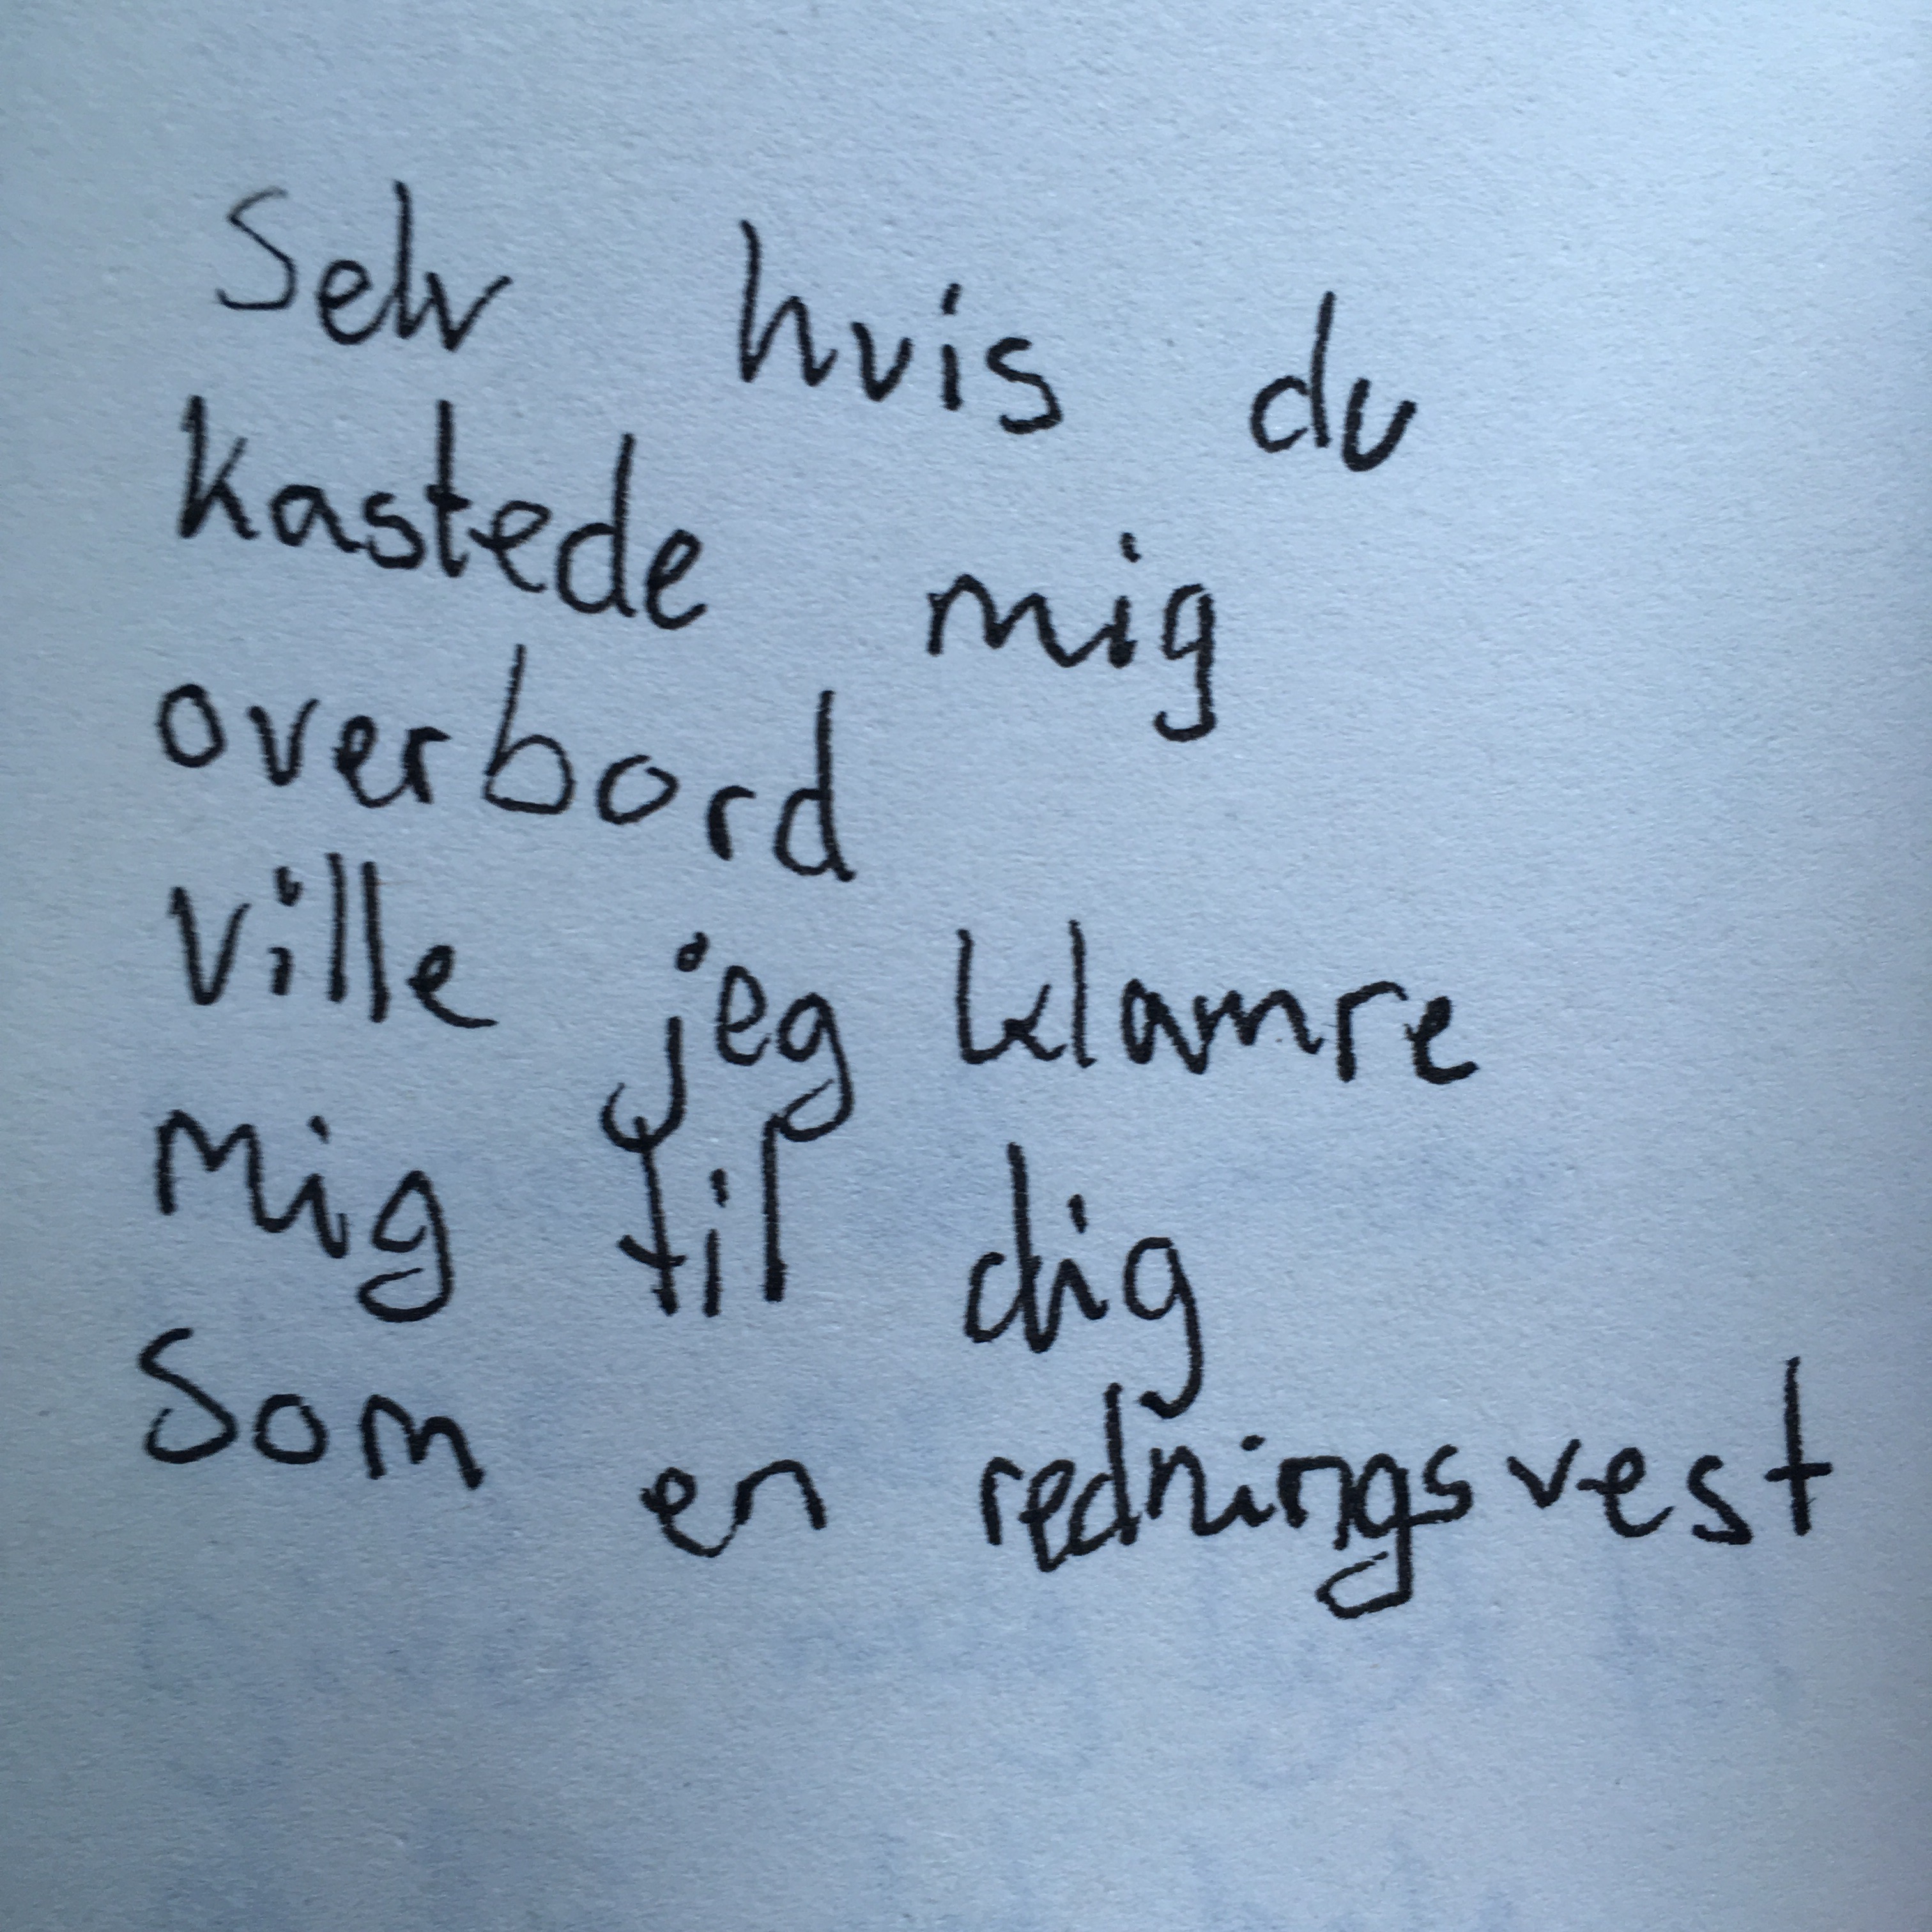 Selv hvis du
kastede mig
overbord
ville jeg klamre
mig til dig
som en redningsvest